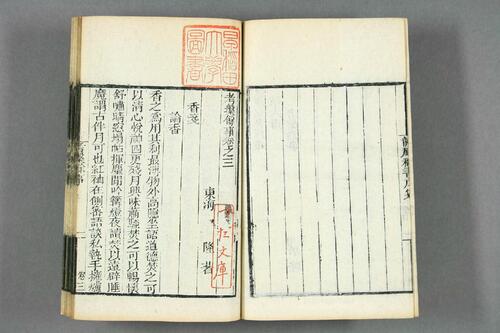 早稻田
大學
圖書
考槃餘事卷之三
東海 屠隆著
香箋
論香
香之為用其利最溥物外高隱坐語道德焚之可
以清心悅神四更殘月興味蕭騷焚之可以暢懷
舒嘯晴窗塌帖揮麈閒吟篝燈夜讀焚以遠辟睡
魔謂古伴月可也紅袖在側密語談私執手擁爐
卷三